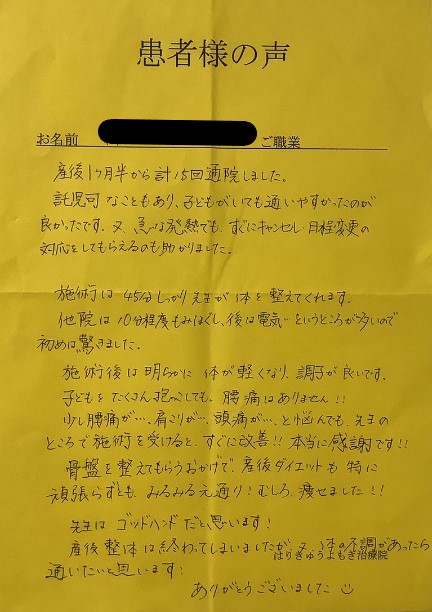 患者様の声
お名前 ご職業
産後1ヶ月半から計15回通院しました。
託児可なこともあり、子どもがいても通いやすかったのが
良かったです。又、急な発熱でも、すぐにキャンセル・日程変更の
対応をしてもらえるのも助かりました。
施術は45分しっかり先生が体を整えてくれます。
他院は10分程度もみほぐし、後は電気…というところが多いので
初めは驚きました。
施術後は明らかに体が軽くなり、調子が良いです。
子どもをたくさん抱っこしても、腰痛はありません!!
少し腰痛が…、肩こりが…、頭痛が…、と悩んでも、先生の
ところで施術を受けると、すぐに改善!!本当に感謝です!!
骨盤を整えてもらうおかげで、産後ダイエットも特に
頑張らずとも、みるみる元通り!むしろ、痩せました!!
先生はゴッドハンドだと思います!
産後整体は終わってしまいましたが、又、体の不調があったら
はりきゅうよもぎ治療院
通いたいと思います!
ありがとうございました